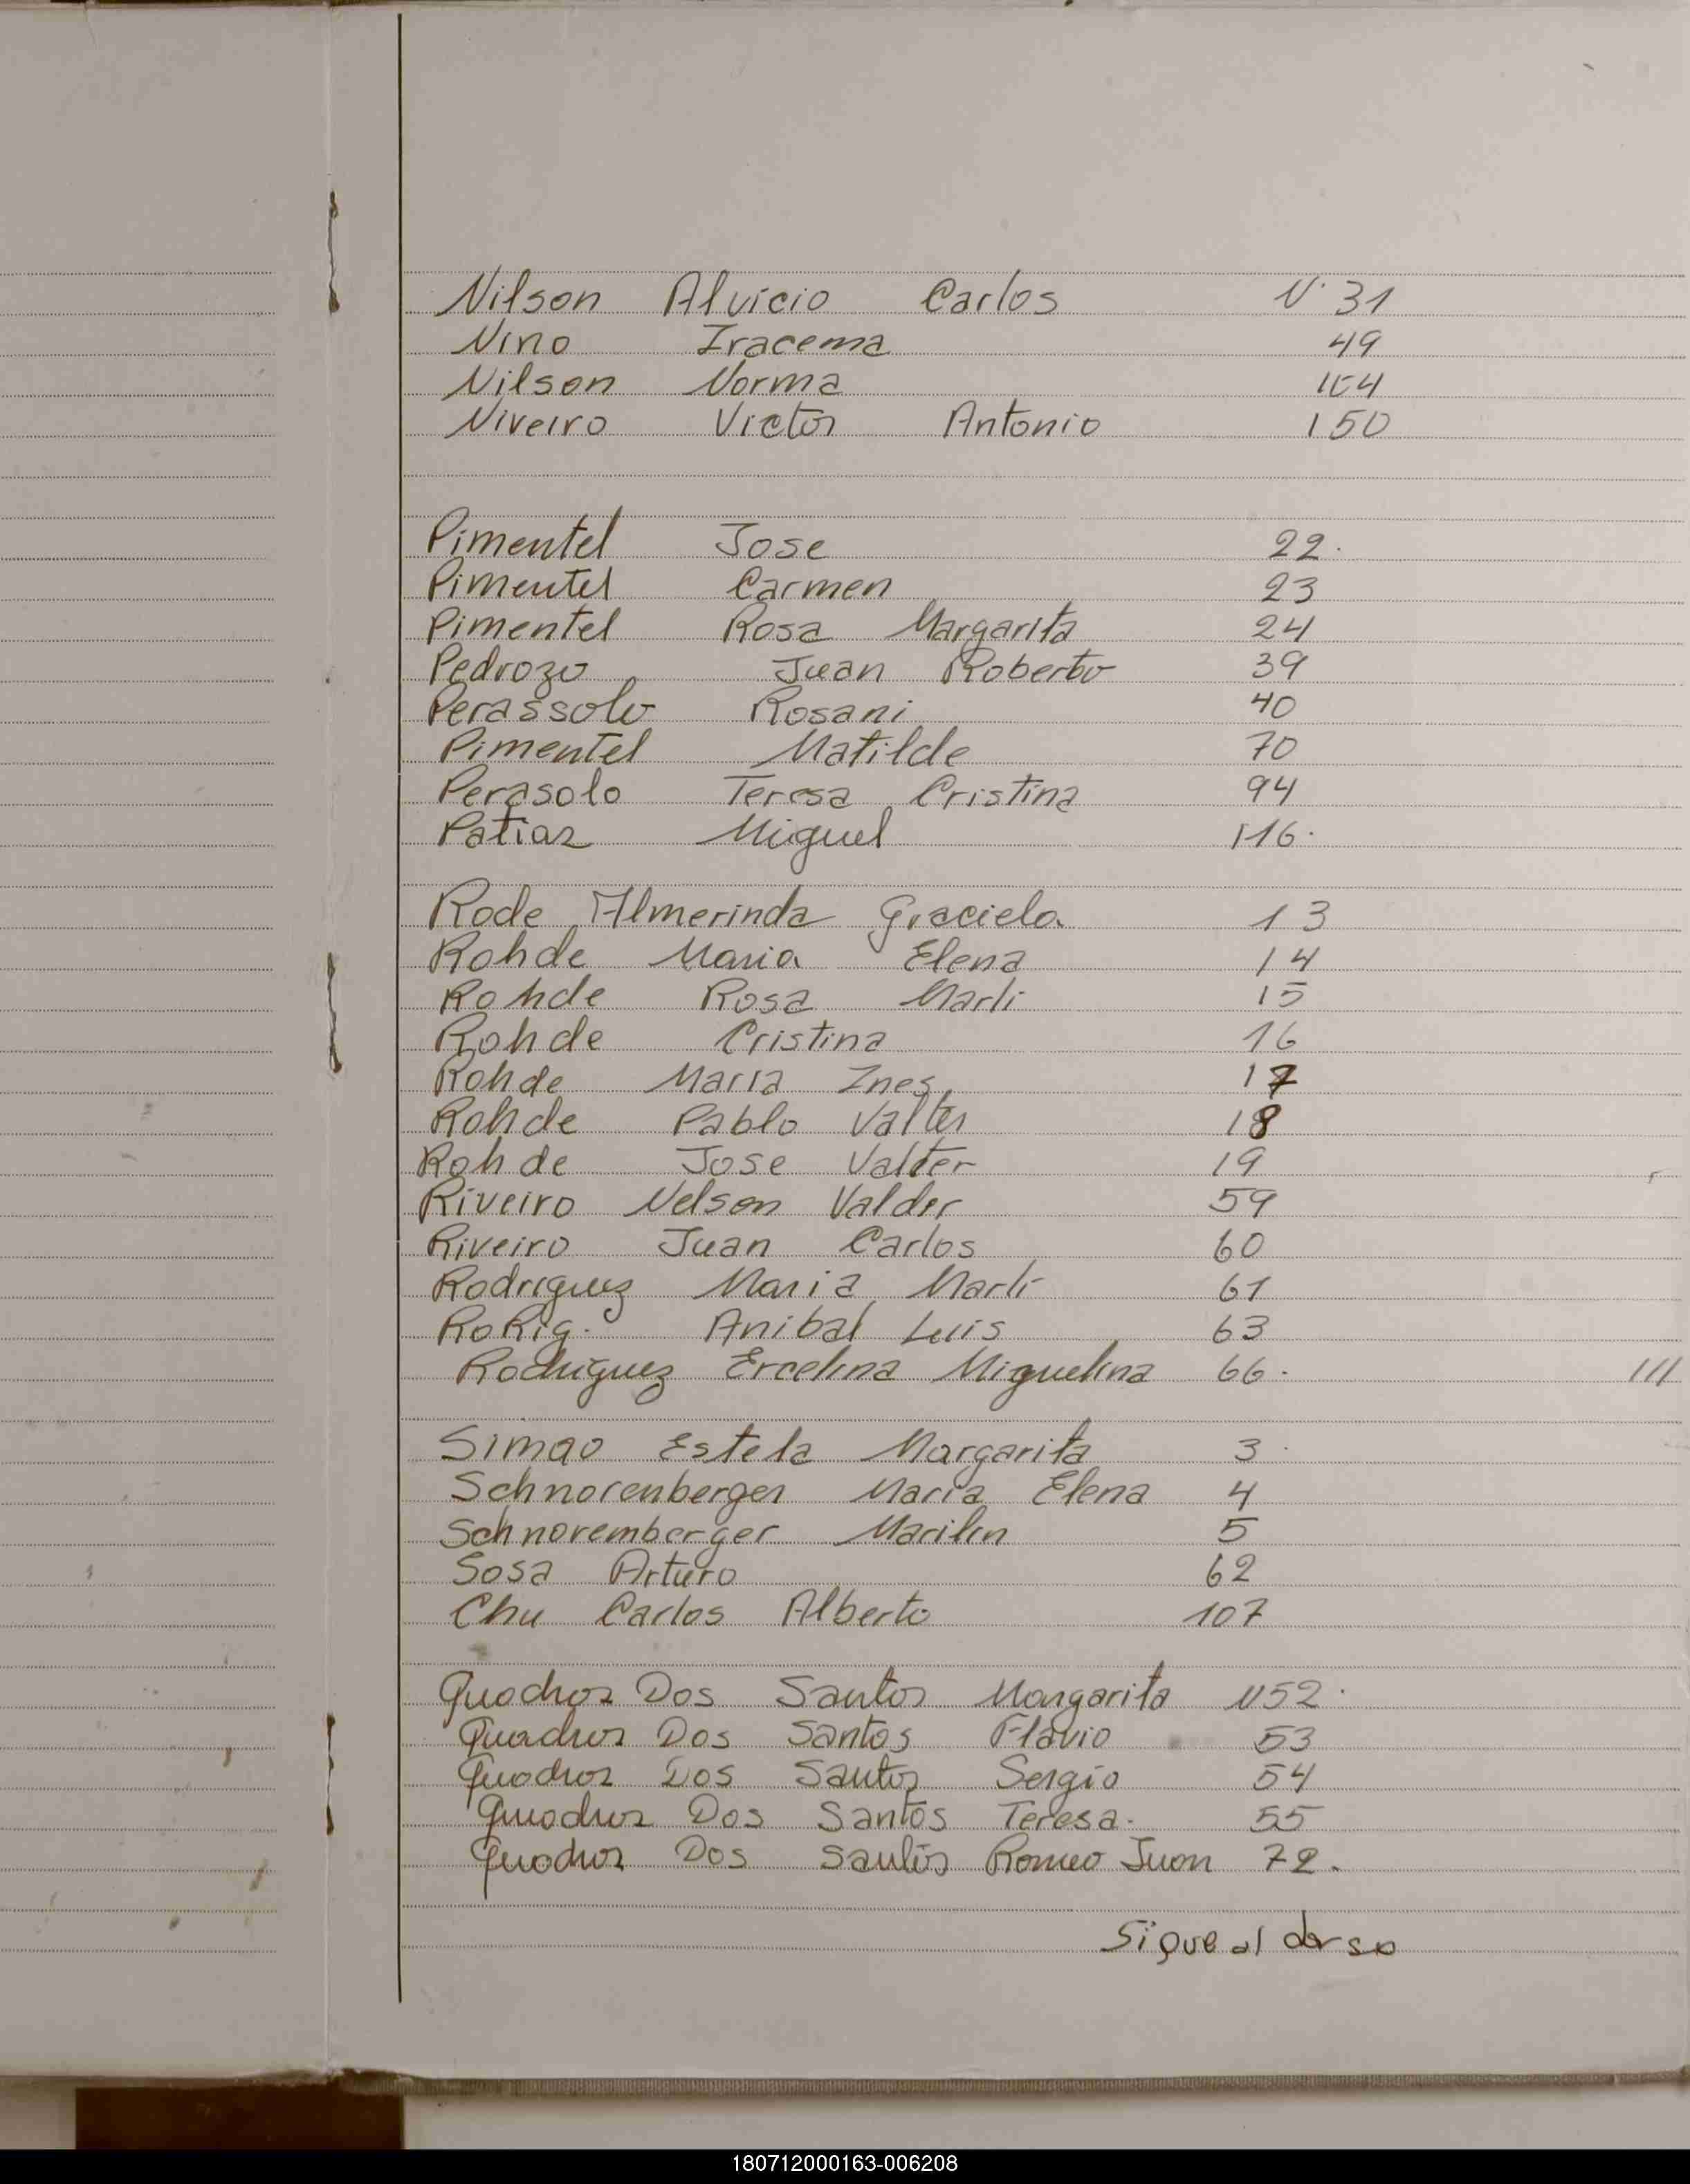 Nilson Alvicio Carlos N° 31
Nino Iracema 49
Nilson Norma 104
Niveiro Victor Antonio 150
Pimentel Jose 22.
Pimentel Carmen 23
Pimentel Rosa Margarita 24
Pedrozo Juan Roberto 39
Perassolo Rosani 40
Pimentel Matilde 70
Perasolo Teresa Cristina 94
Patias Miguel 116.
Rode Almerinda Graciela 13
Rohde Maria Elena 14
Rohde Rosa Marli 15
Rohde Cristina 16
Rohde Maria Ines 17
Rohde Pablo Valter 18
Rohde Jose Valter 19
Riveiro Nelson Valdir 59
Riveiro Juan Carlos 60
Rodriguez Maria Marli 61
RoRig. Anibal Luis 63
Rodriguez Ercelina Miguelina 66. ///
Simao Estela Margarita 3
Schnorenberger Maria Elena 4
Schnoremberger Marilin 5
Sosa Arturo 62
Chu Carlos Alberto 107
Quadros Dos Santos Margarita N52.
Quadros Dos Santos Flavio 53
Quadros Dos Santos Sergio 54
Quadros Dos Santos Teresa. 55
Quadros Dos Santos Romeo Juan 72.
Sigue al dorso
180712000163-006208